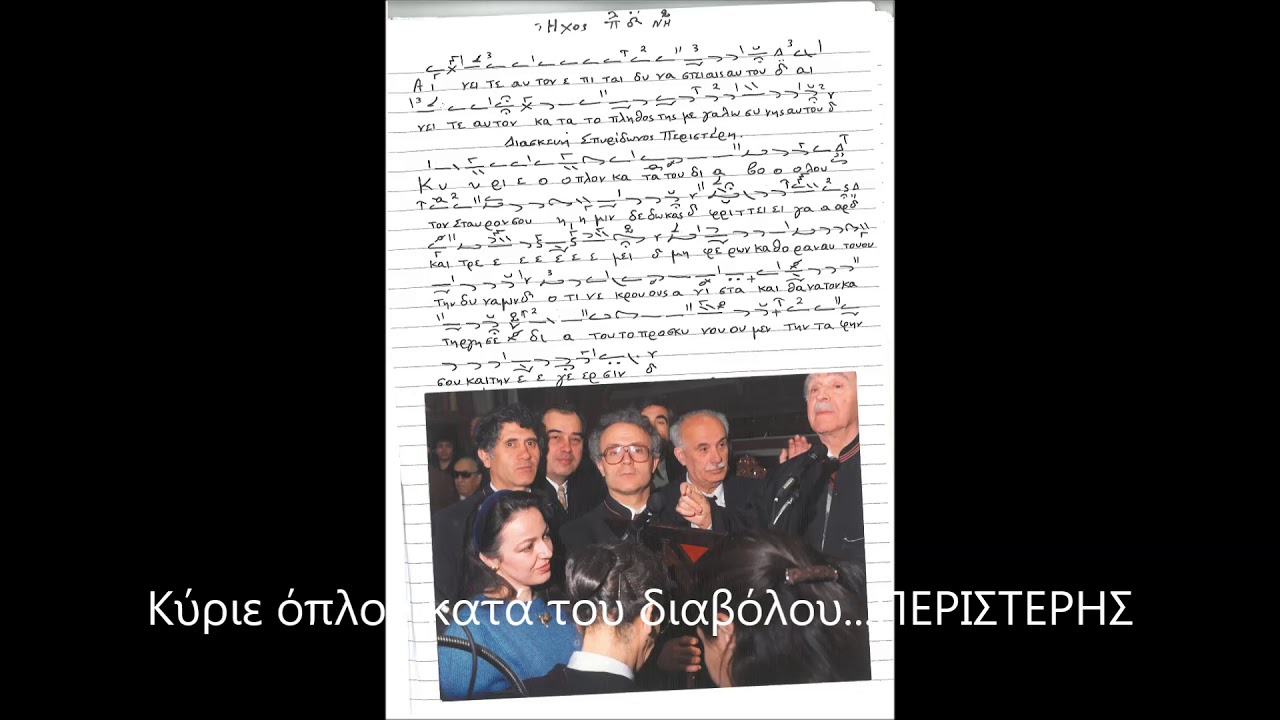 Ήχος λ π δ̈ Νη
Αι νει τε αυ τον ε πι ται δυ να στειαις αυ του δ αι
νει τε αυτόν κα τα το πληθος της με γαλω συ νης αυτού δ
Διασκευή Σπυρίδωνος Περιστέρη.
Κυ υ ρι ε ο όπλον κα τα του δι α βο ο ολου
τον Σταυρον σου η η μιν δεδωκας δ φριττει ει γα α αρ δ
και τρε ε εε ε ε ε μει δ μη φε ρων καθοραν αυ του ου
την δυ ναμιν δ ο τι νε κρους α νι στα και θανατον κα
τηργησε δι α τουτο προσκυ νου ου μεν την τα φην
σου και την ε ε γε ερ σιν δ
Κύριε όπλο κατα του διαβόλου... ΠΕΡΙΣΤΕΡΗΣ